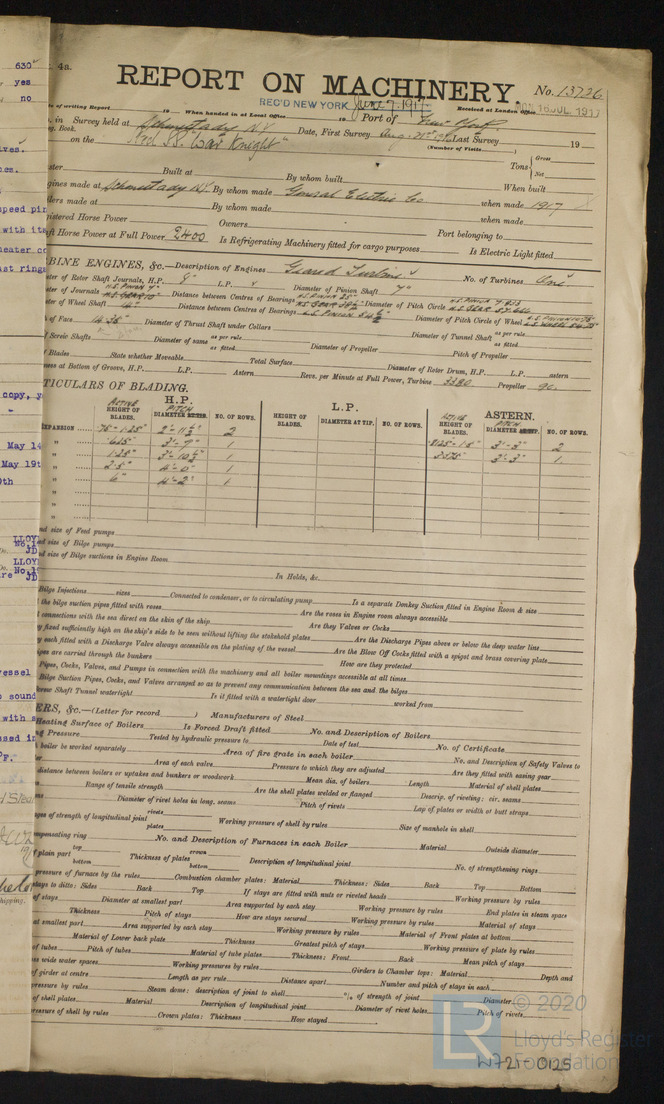 4a.
REPORT ON MACHINERY.
No. 13726
REC'D NEW YORK June 7-1917
Received at London Office
MON. 16 JUL. 1917
of writing Report 19 When handed in at Local Office 19 Port of New York.
in Survey held at Schenectady N.Y. Date, First Survey Aug. 21st 1916 Last Survey 19
Book. (Number of Visits
on the S.S. "War Knight"
Tons Gross
Net
Built at By whom built When built
made at Schenectady N.Y. By whom made General Electric Co when made 1917
made at By whom made when made
Horse Power Owners Port belonging to
Horse Power at Full Power 2400 Is Refrigerating Machinery fitted for cargo purposes Is Electric Light fitted
BINE ENGINES, &c.—Description of Engines Geared Turbine No. of Turbines One
of Rotor Shaft Journals, H.P. 8" L.P. Diameter of Pinion Shaft 7"
of Journals Distance between Centres of Bearings Diameter of Pitch Circle
of Wheel Shaft Distance between Centres of Bearings Diameter of Pitch Circle of Wheel
of Face Diameter of Thrust Shaft under Collars Diameter of Tunnel Shaft as per rule
as fitted
Screw Shafts Diameter of same as per rule
as fitted Diameter of Propeller Pitch of Propeller
Blades State whether Moveable Total Surface Diameter of Rotor Drum, H.P. L.P. astern
at Bottom of Groove, H.P. L.P. Astern Revs. per Minute at Full Power, Turbine 3380 Propeller 90
TICULARS OF BLADING.
H.P. L.P. ASTERN.
ACTIVE HEIGHT OF BLADES. PITCH DIAMETER NO. OF ROWS. HEIGHT OF BLADES. DIAMETER AT TIP. NO. OF ROWS. ACTIVE HEIGHT OF BLADES. PITCH DIAMETER NO. OF ROWS.
EXPANSION .75"-1.25" 2'-11½" 2 2
.625" 3'-9" 1 3'-3" 1
1.25" 3'-10½" 1
2.5" 4'-0" 1
6" 4'-2" 1
size of Feed pumps
size of Bilge pumps
size of Bilge suctions in Engine Room
In Holds, &c.
Bilge Injections sizes Connected to condenser, or to circulating pump Is a separate Donkey Suction fitted in Engine Room & size
the bilge suction pipes fitted with roses Are the roses in Engine room always accessible
connections with the sea direct on the skin of the ship Are they Valves or Cocks
fixed sufficiently high on the ship's side to be seen without lifting the stokehold plates Are the Discharge Pipes above or below the deep water line
each fitted with a Discharge Valve always accessible on the plating of the vessel Are the Blow Off Cocks fitted with a spigot and brass covering plate
are carried through the bunkers How are they protected
Pipes, Cocks, Valves, and Pumps in connection with the machinery and all boiler mountings accessible at all times
Bilge Suction Pipes, Cocks, and Valves arranged so as to prevent any communication between the sea and the bilges
Screw Shaft Tunnel watertight Is it fitted with a watertight door worked from
ERS, &c.—(Letter for record ) Manufacturers of Steel
Heating Surface of Boilers Is Forced Draft fitted No. and Description of Boilers
Pressure Tested by hydraulic pressure to Date of test No. of Certificate
boiler be worked separately Area of fire grate in each boiler No. and Description of Safety Valves to
Area of each valve Pressure to which they are adjusted Are they fitted with easing gear
distance between boilers or uptakes and bunkers or woodwork Mean dia. of boilers Length Material of shell plates
Range of tensile strength Are the shell plates welded or flanged Descrip. of riveting: cir. seams
Diameter of rivet holes in long. seams Pitch of rivets Lap of plates or width of butt straps
of strength of longitudinal joint rivets
plates Working pressure of shell by rules Size of manhole in shell
compensating ring No. and Description of Furnaces in each Boiler Material Outside diameter
plain part top
bottom Thickness of plates crown
bottom Description of longitudinal joint No. of strengthening rings
pressure of furnace by the rules Combustion chamber plates: Material Thickness: Sides Back Top Bottom
stays to ditto: Sides Back Top If stays are fitted with nuts or riveted heads Working pressure by rules
of stays Diameter at smallest part Area supported by each stay Working pressure by rules End plates in steam space
Thickness Pitch of stays How are stays secured Working pressure by rules Material of stays
at smallest part Area supported by each stay Working pressure by rules Material of Front plates at bottom
Material of Lower back plate Thickness Greatest pitch of stays Working pressure of plate by rules
of tubes Pitch of tubes Material of tube plates Thickness: Front Back Mean pitch of stays
wide water spaces Working pressures by rules Girders to Chamber tops: Material Depth and
of girder at centre Length as per rule Distance apart Number and pitch of stays in each
pressure by rules Steam dome: description of joint to shell % of strength of joint Diameter
of shell plates Material Description of longitudinal joint Diameter of rivet holes Pitch of rivets
pressure of shell by rules Crown plates: Thickness How stayed
© 2020
Lloyd's Register
Foundation
LR
W721-0125
630
yes
no
copy,
May 14
May 19t
vessel
sound
with